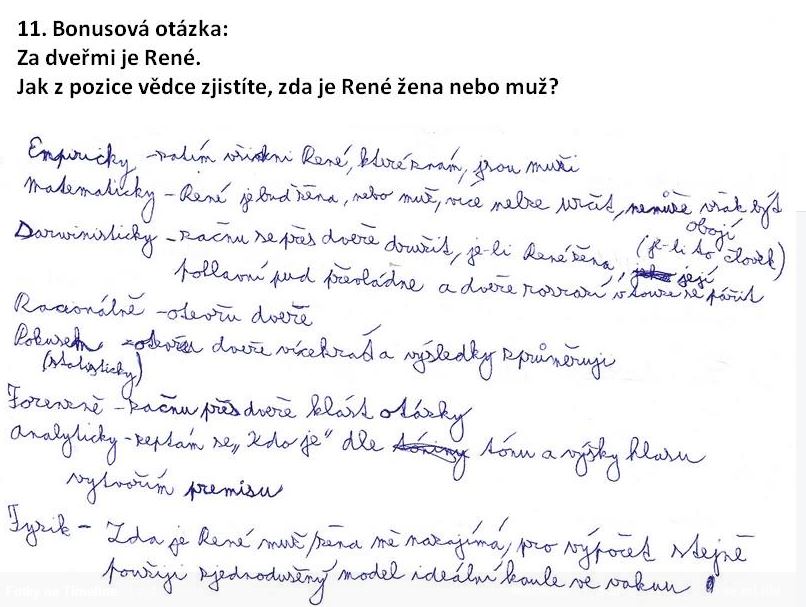 11. Bonusová otázka:
Za dveřmi je René.
Jak z pozice vědce zjistíte, zda je René žena nebo muž?
Empiricky - zatím všichni René, které znám, jsou muži
Matematicky - René je buď žena, nebo muž, více nelze určit, nemůže však být
obojí
(je-li to člověk)
Darwinisticky - začnu se přes dveře dvořit, je-li René žena, její
pohlavní pud převládne a dveře rozrazí v touze se pářit
Racionálně - otevřu dveře
Pokusem - otevřu dveře vícekrát a výsledky zprůměruji
(statisticky)
Forenzně - začnu přes dveře klást otázky
Analyticky - zeptám se „Kdo je“ dle tónu a výšky hlasu
vytvořím premisu
Fyzik - Zda je René muž/žena mě nezajímá, pro výpočet stejně
použiji zjednodušený model ideální koule ve vakuu